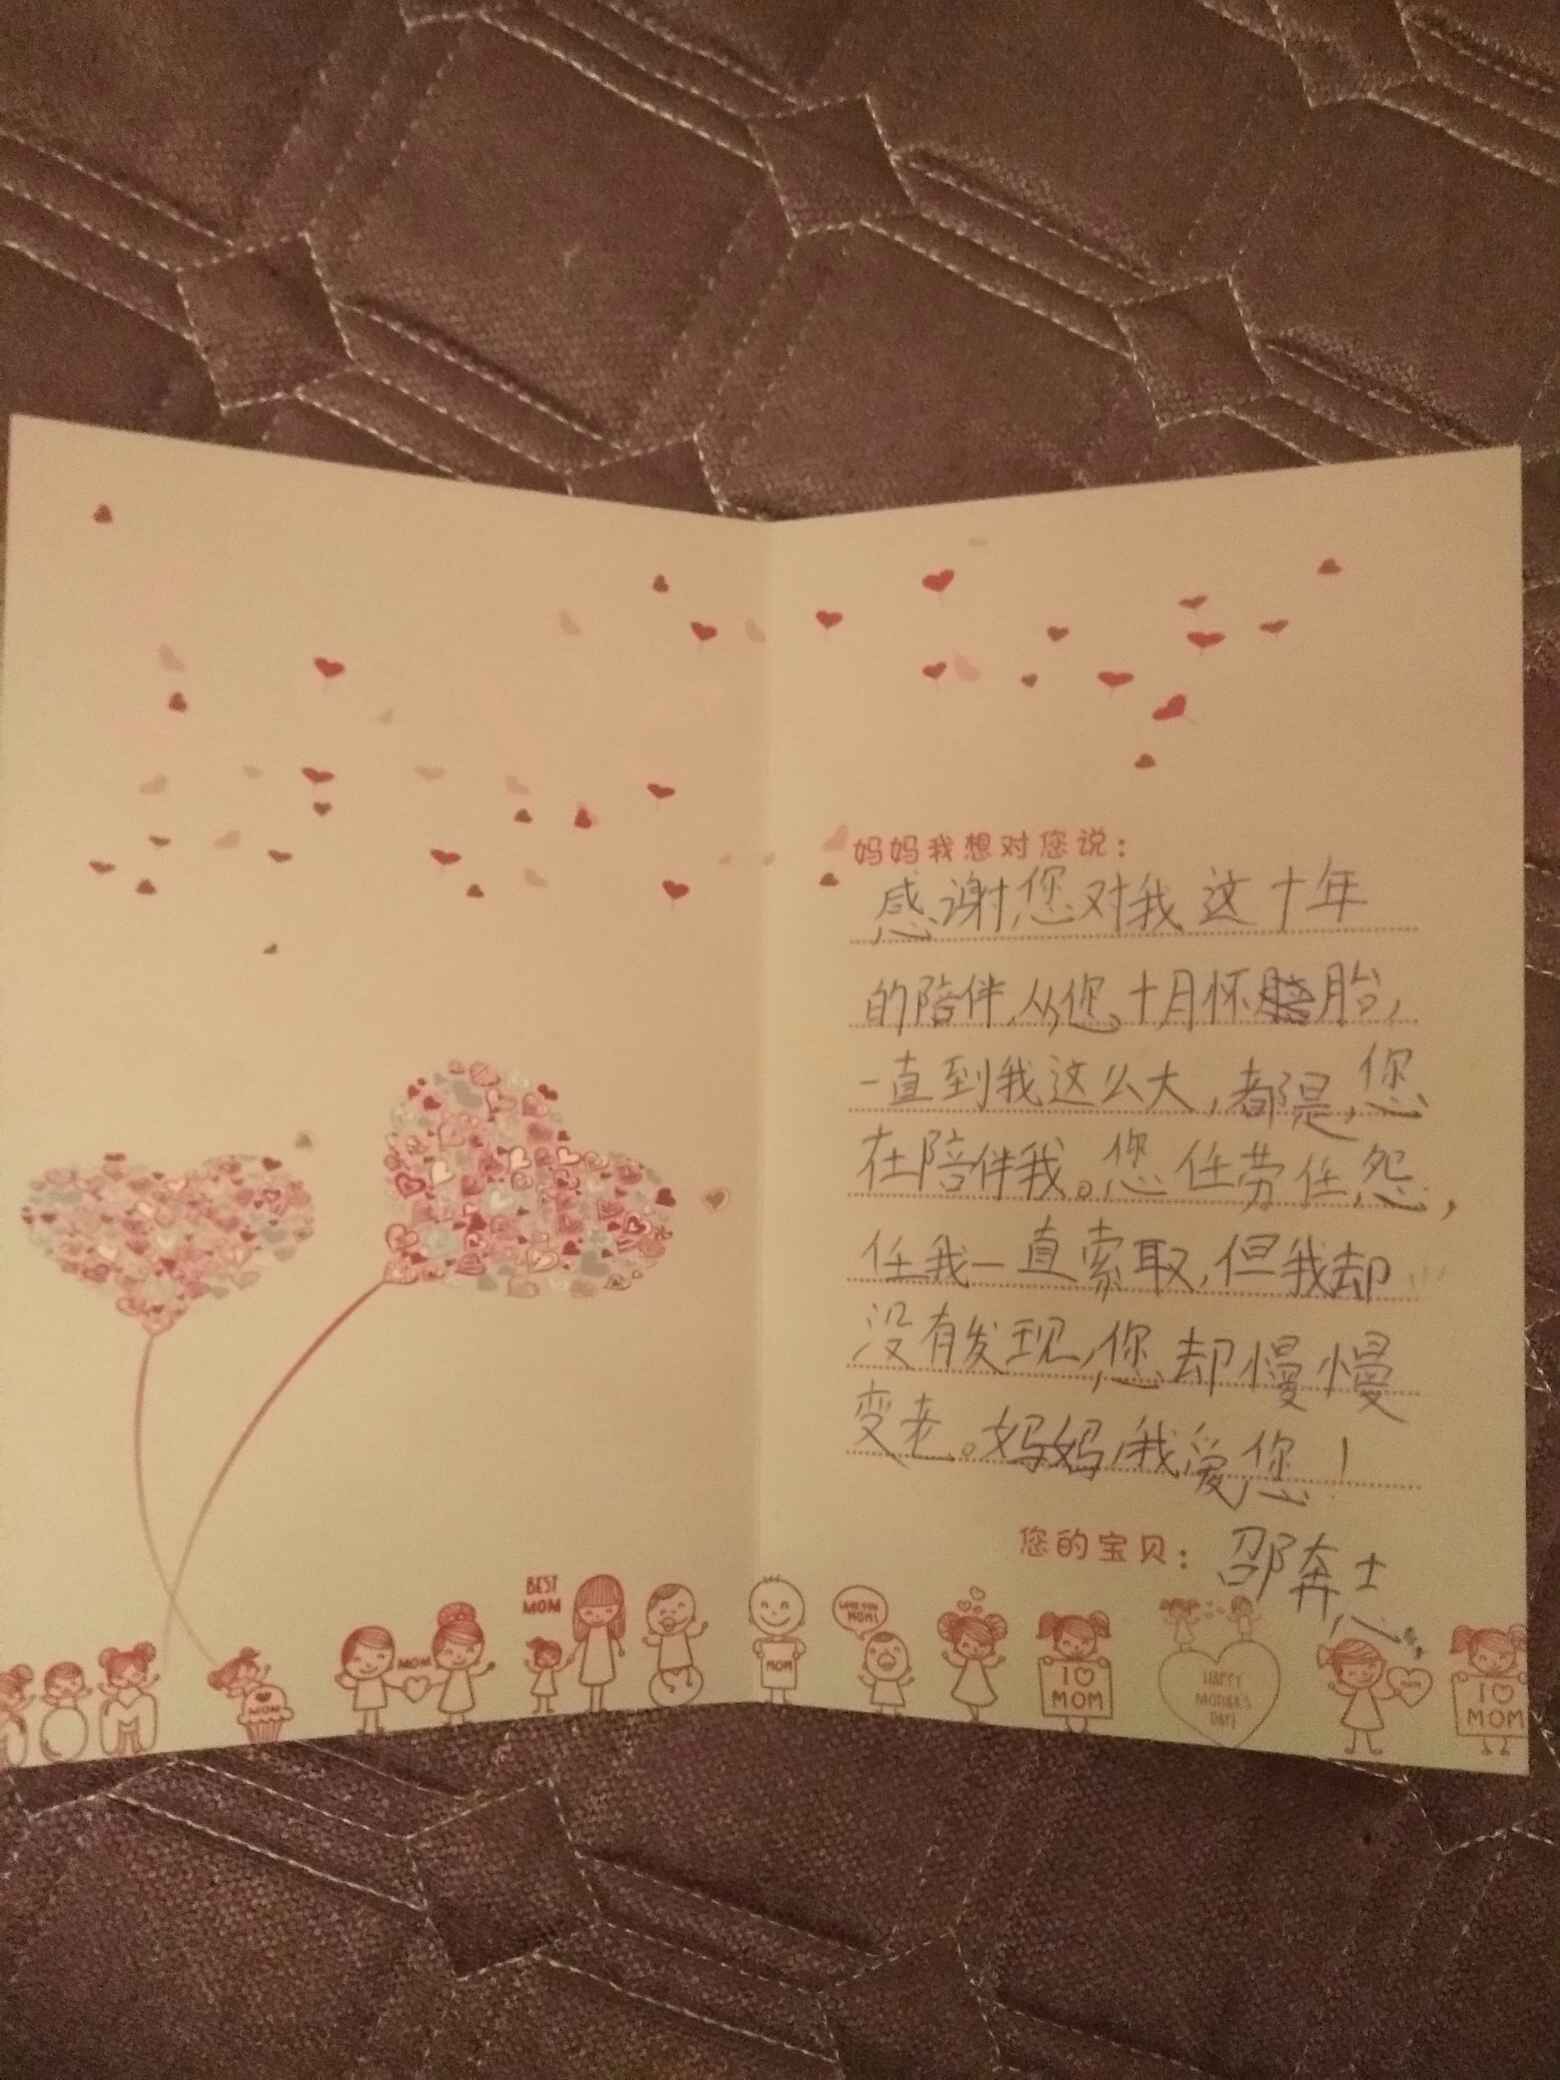 妈妈我想对您说：
感谢您对我这十年
的陪伴,从您十月怀胎,
一直到我这么大,都是您
在陪伴我。您任劳任怨,
任我一直索取,但我却
没有发现,您却慢慢
变老。妈妈,我爱您！
您的宝贝：邵奔志
BEST
MOM
MOM
MOM
M
MOM
LOVE YOU
MOM!
I
MOM
HAPPY
MOTHER'S
DAY!
MOM
I
MOM